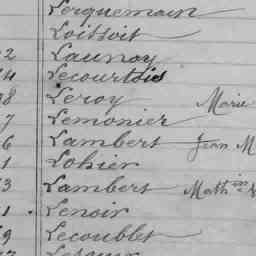 Lerquemain
Loissoit
2 Launoy
4 Lecourtois
8 Leroy Marie
7 Lemonier
6 Lambert Jean M
1 Lohier
3 Lambert Math in
1 . Lenoir
9 Lecoublet